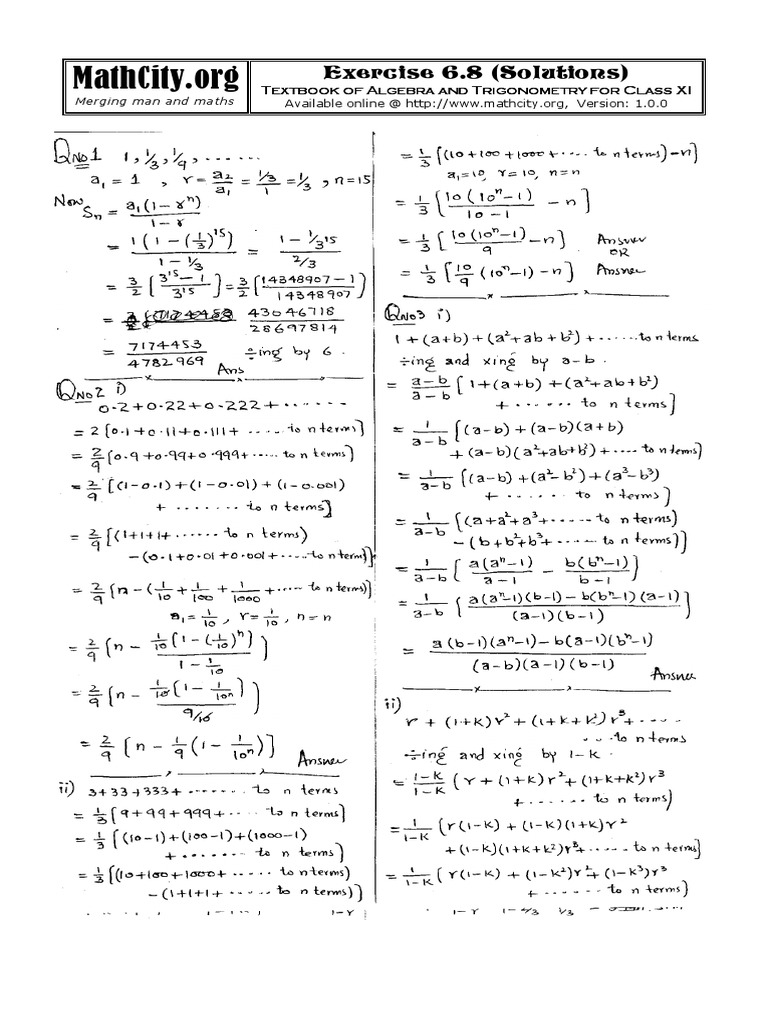 MathCity.org
Merging man and maths
Exercise 6.8 (Solutions)
TEXTBOOK OF ALGEBRA AND TRIGONOMETRY FOR CLASS XI
Available online @ http://www.mathcity.org, Version: 1.0.0
QNo1 1, 1/3, 1/9, ......
a₁ = 1 , r = a₂/a₁ = (1/3)/1 = 1/3 , n = 15
Now Sₙ = a₁(1 − rⁿ)/(1 − r)
= 1(1 − (1/3)¹⁵)/(1 − 1/3) = (1 − 1/3¹⁵)/(2/3)
= 3/2 [(3¹⁵ − 1)/3¹⁵] = 3/2 [(14348907 − 1)/14348907]
= 43046718/28697814
= 7174453/4782969 ÷ing by 6.
Ans
QNo2 i)
0.2+0.22+0.222+ ......
= 2[0.1+0.11+0.111+ ..... to n terms]
= 2/9 [0.9+0.99+0.999+ ..... to n terms]
= 2/9 [(1−0.1)+(1−0.01)+(1−0.001)
+ ....... to n terms]
= 2/9 [(1+1+1+ ...... to n terms)
−(0.1+0.01+0.001+ .... to n terms)]
= 2/9 [n − (1/10 + 1/100 + 1/1000 + .... to n terms)]
a₁ = 1/10 , r = 1/10 , n = n
= 2/9 [n − 1/10[1 − (1/10)ⁿ]/(1 − 1/10)]
= 2/9 [n − 1/10[1 − 1/10ⁿ]/(9/10)]
= 2/9 [n − 1/9 (1 − 1/10ⁿ)] Answer
ii) 3+33+333+ ....... to n terms
= 1/3 [9+99+999+ .... to n terms]
= 1/3 [(10−1)+(100−1)+(1000−1)
+ ........ to n terms]
= 1/3 [(10+100+1000+ ..... to n terms)
−(1+1+1+ ...... to n terms)]
= 1/3 [(10+100+1000+ .... to n terms)−n]
a₁=10, r=10, n=n
= 1/3 [10(10ⁿ−1)/(10−1) − n]
= 1/3 [10(10ⁿ−1)/9 − n] Answer
OR
= 1/3 [10/9 (10ⁿ−1) − n] Answer
QNo3 i)
1+(a+b)+(a²+ab+b²)+ ...... to n terms
÷ing and xing by a−b.
= (a−b)/(a−b) [1+(a+b)+(a²+ab+b²)
+ ...... to n terms]
= 1/(a−b) [(a−b)+(a−b)(a+b)
+(a−b)(a²+ab+b²)+ ..... to n terms]
= 1/(a−b) [(a−b)+(a²−b²)+(a³−b³)
+ ...... to n terms]
= 1/(a−b) [(a+a²+a³+ ...... to n terms)
−(b+b²+b³+ ..... to n terms)]
= 1/(a−b) [a(aⁿ−1)/(a−1) − b(bⁿ−1)/(b−1)]
= 1/(a−b) [(a(aⁿ−1)(b−1)−b(bⁿ−1)(a−1))/((a−1)(b−1))]
= (a(b−1)(aⁿ−1)−b(a−1)(bⁿ−1))/((a−b)(a−1)(b−1))
Answer
ii)
r+(1+K)r²+(1+K+K²)r³+ .....
.. to n terms
÷ing and xing by 1−K.
= (1−K)/(1−K) (r+(1+K)r²+(1+K+K²)r³
+ ...... to n terms]
= 1/(1−K) [r(1−K)+(1−K)(1+K)r²
+(1−K)(1+K+K²)r³+ ..... to n terms]
= 1/(1−K) (r(1−K)+(1−K²)r²+(1−K³)r³
+ ...... to n terms]